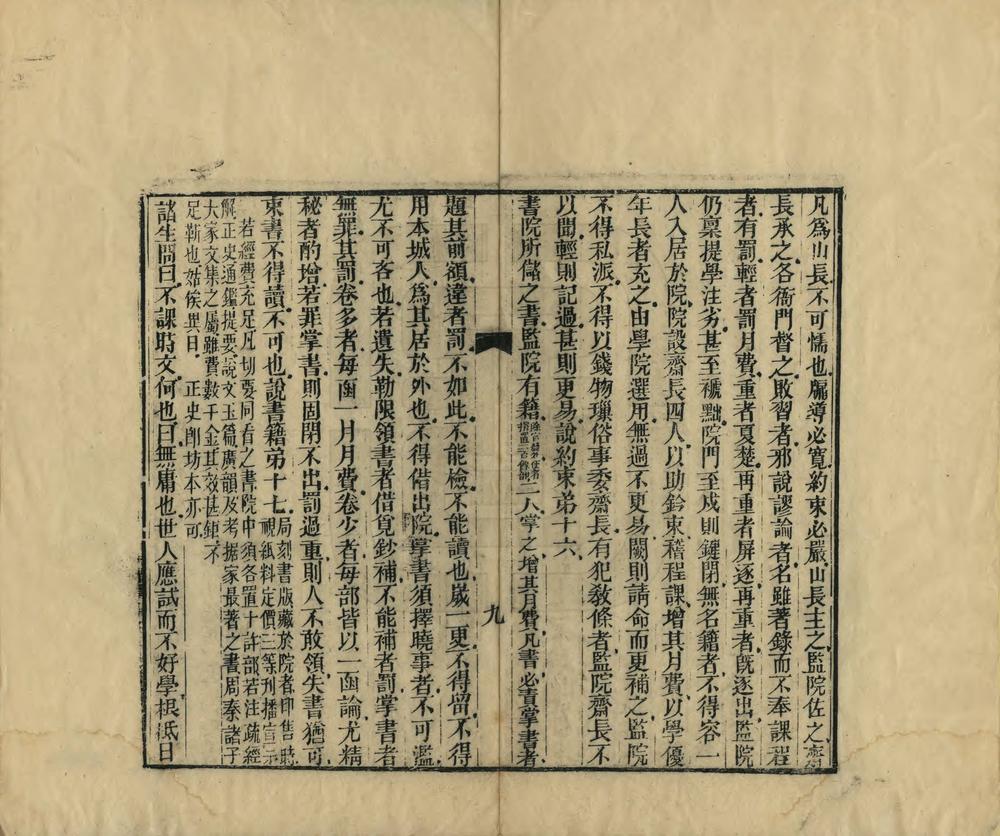 凡爲山長不可懦也牖導必寬約束必嚴山長主之監院佐之齋
長承之各衙門督之敗習者邪說謬論者名雖著錄而不奉課程
者有罰輕者罰月費重者夏楚再重者屏逐再重者旣逐出監院
仍稟提學注劣甚至褫黜院門至戍則鍵閉無名籍者不得容一
人入居於院院設齋長四人以助鈐束稽程課增其月費以學優
年長者充之由學院選用無過不更易闕則請命而更補之監院
不得私派不得以錢物瑣俗事委齋長有犯敎條者監院齋長不
以聞輕則記過甚則更易說約束弟十六
書院所儲之書監院有籍二人掌之增其月費凡書必責掌書者
九
題其前額違者罰不如此不能檢不能讀也歲一更不得留不得
用本城人爲其居於外也不得借出院掌書須擇曉事者不可濫
尤不可吝也若遺失勒限領書者借覓鈔補不能補者罰掌書者
無罪其罰卷多者每函一月月費卷少者每部皆以一函論尤精
秘者酌增若罪掌書則固閉不出罰過重則人不敢領失書猶可
束書不得讀不可也說書籍弟十七局刻書版藏於院者印售時
視紙料定價三等刊播宣示
若經費充足凡切要同看之書院中須各置十許部若注疏經
解正史通鑑提要說文玉篇廣韻及考據家最著之書周秦諸子
大家文集之屬雖費數千金其效甚鉅不
足靳也姑俟異日 正史卽坊本亦可
諸生問曰不課時文何也曰無庸也世人應試而不好學根柢日